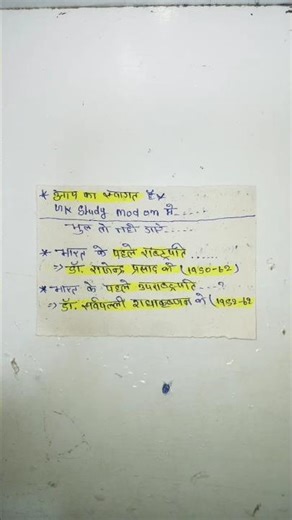 * आप का स्वागत है *
UK Study mod on मे.....
भुल तो नही जाए....
* भारत के पहले राष्ट्रपति......
⇒ डॉ. राजेन्द्र प्रसाद को (1950-62)
* भारत के पहले उपराष्ट्रपति....?
⇒ डॉ. सर्वपल्ली राधाकृष्णन को (1952-62